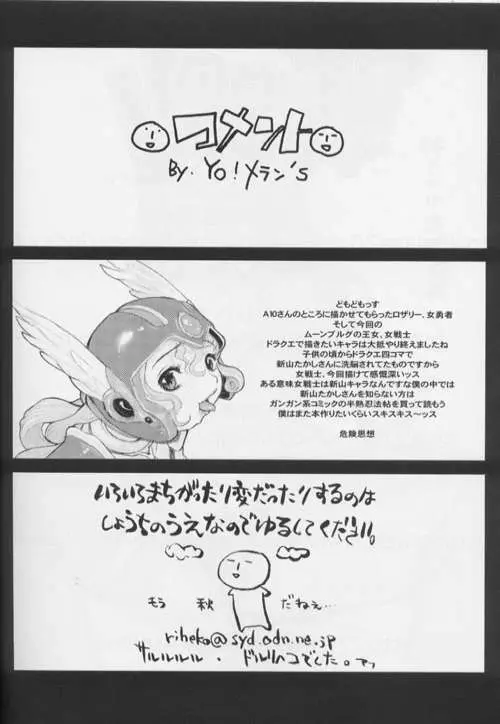 コメント
By. YO!メラン's
どもどもっす
A10さんのところに描かせてもらったロザリー、女勇者
そして今回の
ムーンブルグの王女、女戦士
ドラクエで描きたいキャラは大抵やり終えましたね
子供の頃からドラクエ四コマで
新山たかしさんに洗脳されてたものですから
女戦士、今回描けて感慨深いッス
ある意味女戦士は新山キャラなんですな僕の中では
新山たかしさんを知らない方は
ガンガン系コミックの半熟忍法帖を買って読もう
僕はまた本作りたいくらいスキスキス〜ッス
危険思想
いろいろまちがったり変だったりするのは
しょうちのうえなのでゆるしてください。
もう 秋 だねえ…
riheko@syd.odn.ne.jp
サルルルルル・ドルリヘコでした。